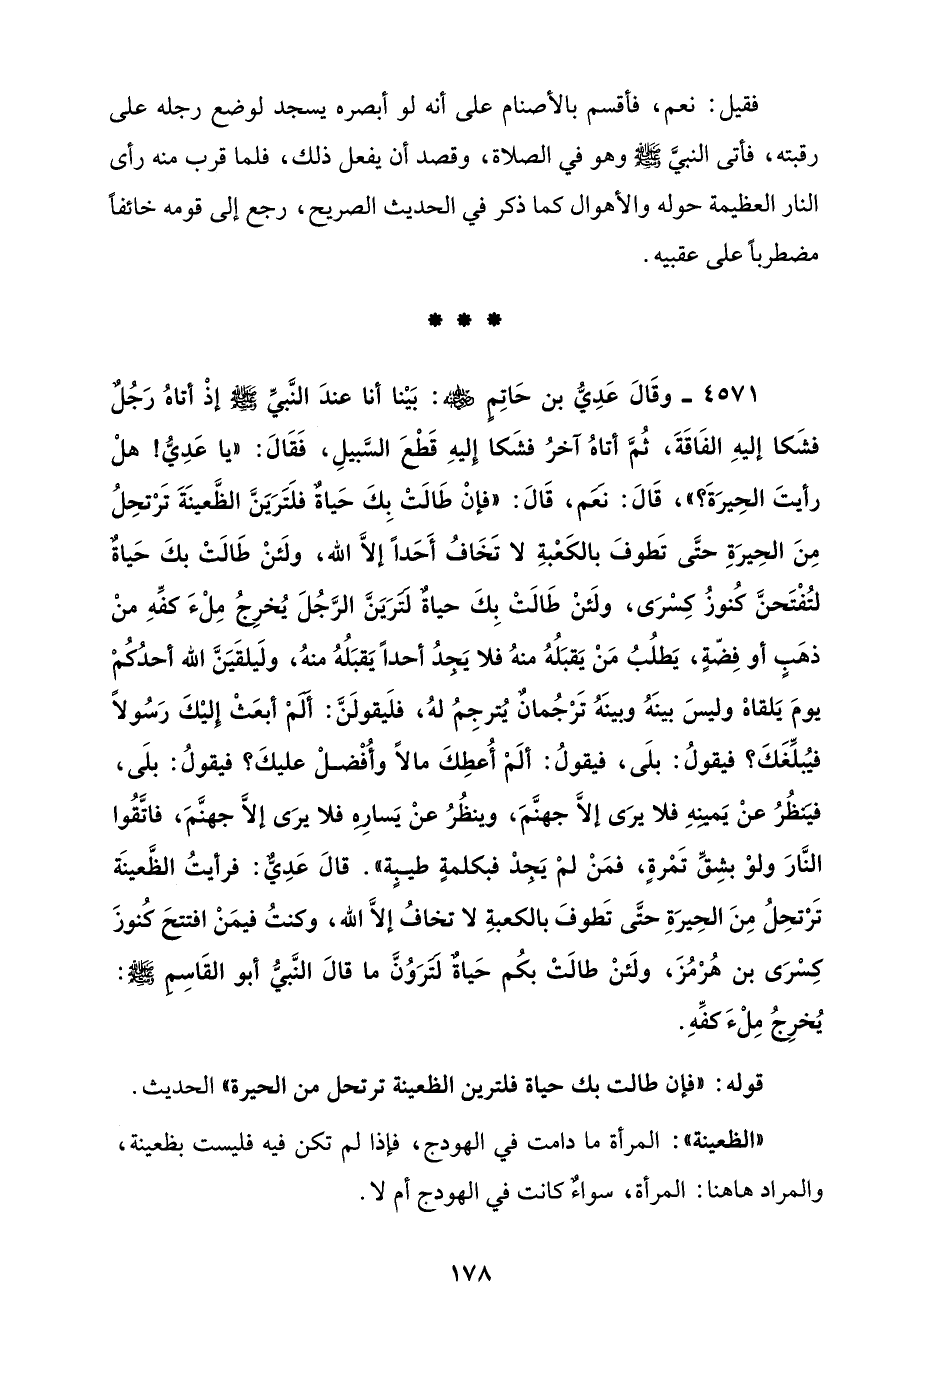 فقيل: نعم، فأقسم بالأصنام على أنه لو أبصره يسجد لوضع رجله على
رقبته، فأتى النبيَّ ﷺ وهو في الصلاة، وقصد أن يفعل ذلك، فلما قرب منه رأى
النار العظيمة حوله والأهوال كما ذكر في الحديث الصريح، رجع إلى قومه خائفاً
مضطرباً على عقبيه.
* * *
٤٥٧١ ـ وقَالَ عَدِيُّ بن حَاتِمٍ ﵁: بَيْنا أنا عندَ النَّبيِّ ﷺ إذْ أتاهُ رَجُلٌ
فشَكا إليهِ الفَاقَةَ، ثُمَّ أتاهُ آخرُ فشكا إليهِ قَطْعَ السَّبيلِ، فَقَالَ: «يا عَدِيُّ! هلْ
رأيتَ الحِيرَةَ؟»، قَالَ: نعَم، قَالَ: «فإنْ طَالَتْ بِكَ حَياةٌ فلَتَرَيَنَّ الظَّعينَةَ تَرْتحِلُ
مِنَ الحِيرَةِ حتَّى تَطوفَ بالكَعْبةِ لا تَخَافُ أَحَداً إلاَّ الله، ولَئنْ طَالَتْ بكَ حَياةٌ
لتُفْتَحنَّ كُنوزُ كِسْرَى، ولَئنْ طَالَتْ بِكَ حياةٌ لَتَرَيَنَّ الرَّجُلَ يُخرِجُ مِلْءَ كفِّهِ منْ
ذهَبٍ أو فِضّةٍ، يَطلُبُ مَنْ يَقبَلُهُ منهُ فلا يَجِدُ أحداً يَقبَلُهُ منهُ، ولَيلقَيَنَّ الله أحدُكُمْ
يومَ يَلقاهُ وليسَ بينَهُ وبينَهُ تَرْجُمانٌ يُترجِمُ لهُ، فلَيقولَنَّ: أَلَمْ أبعَثْ إِليْكَ رَسُولاً
فيُبلِّغَكَ؟ فيقولُ: بلَى، فيقولُ: ألَمْ أُعطِكَ مالاً وأُفْضلْ عليكَ؟ فيقولُ: بلَى،
فيَنظُرُ عنْ يَمينِهِ فلا يرَى إلاَّ جهنَّمَ، وينظُرُ عنْ يَسارِهِ فلا يرَى إلاَّ جهنَّمَ، فاتَّقُوا
النَّارَ ولوْ بشِقِّ تَمْرةٍ، فمَنْ لمْ يَجِدْ فبكلمةٍ طيبةٍ». قالَ عَدِيٌّ: فرأيتُ الظَّعينَة
تَرْتحِلُ مِنَ الحِيرَةِ حتَّى تَطوفَ بالكعبةِ لا تخافُ إلاَّ الله، وكنتُ فيمَنْ افتتحَ كُنوزَ
كِسْرَى بن هُرْمُزَ، ولَئنْ طالَتْ بكُم حَياةٌ لَتَرَوُنَّ ما قالَ النَّبيُّ أبو القَاسِمِ ﷺ:
يُخرِجُ مِلْءَ كفِّهِ.
قوله: «فإن طالت بك حياة فلترين الظعينة ترتحل من الحيرة» الحديث.
«الظعينة»: المرأة ما دامت في الهودج، فإذا لم تكن فيه فليست بظعينة،
والمراد هاهنا: المرأة، سواءٌ كانت في الهودج أم لا.
١٧٨